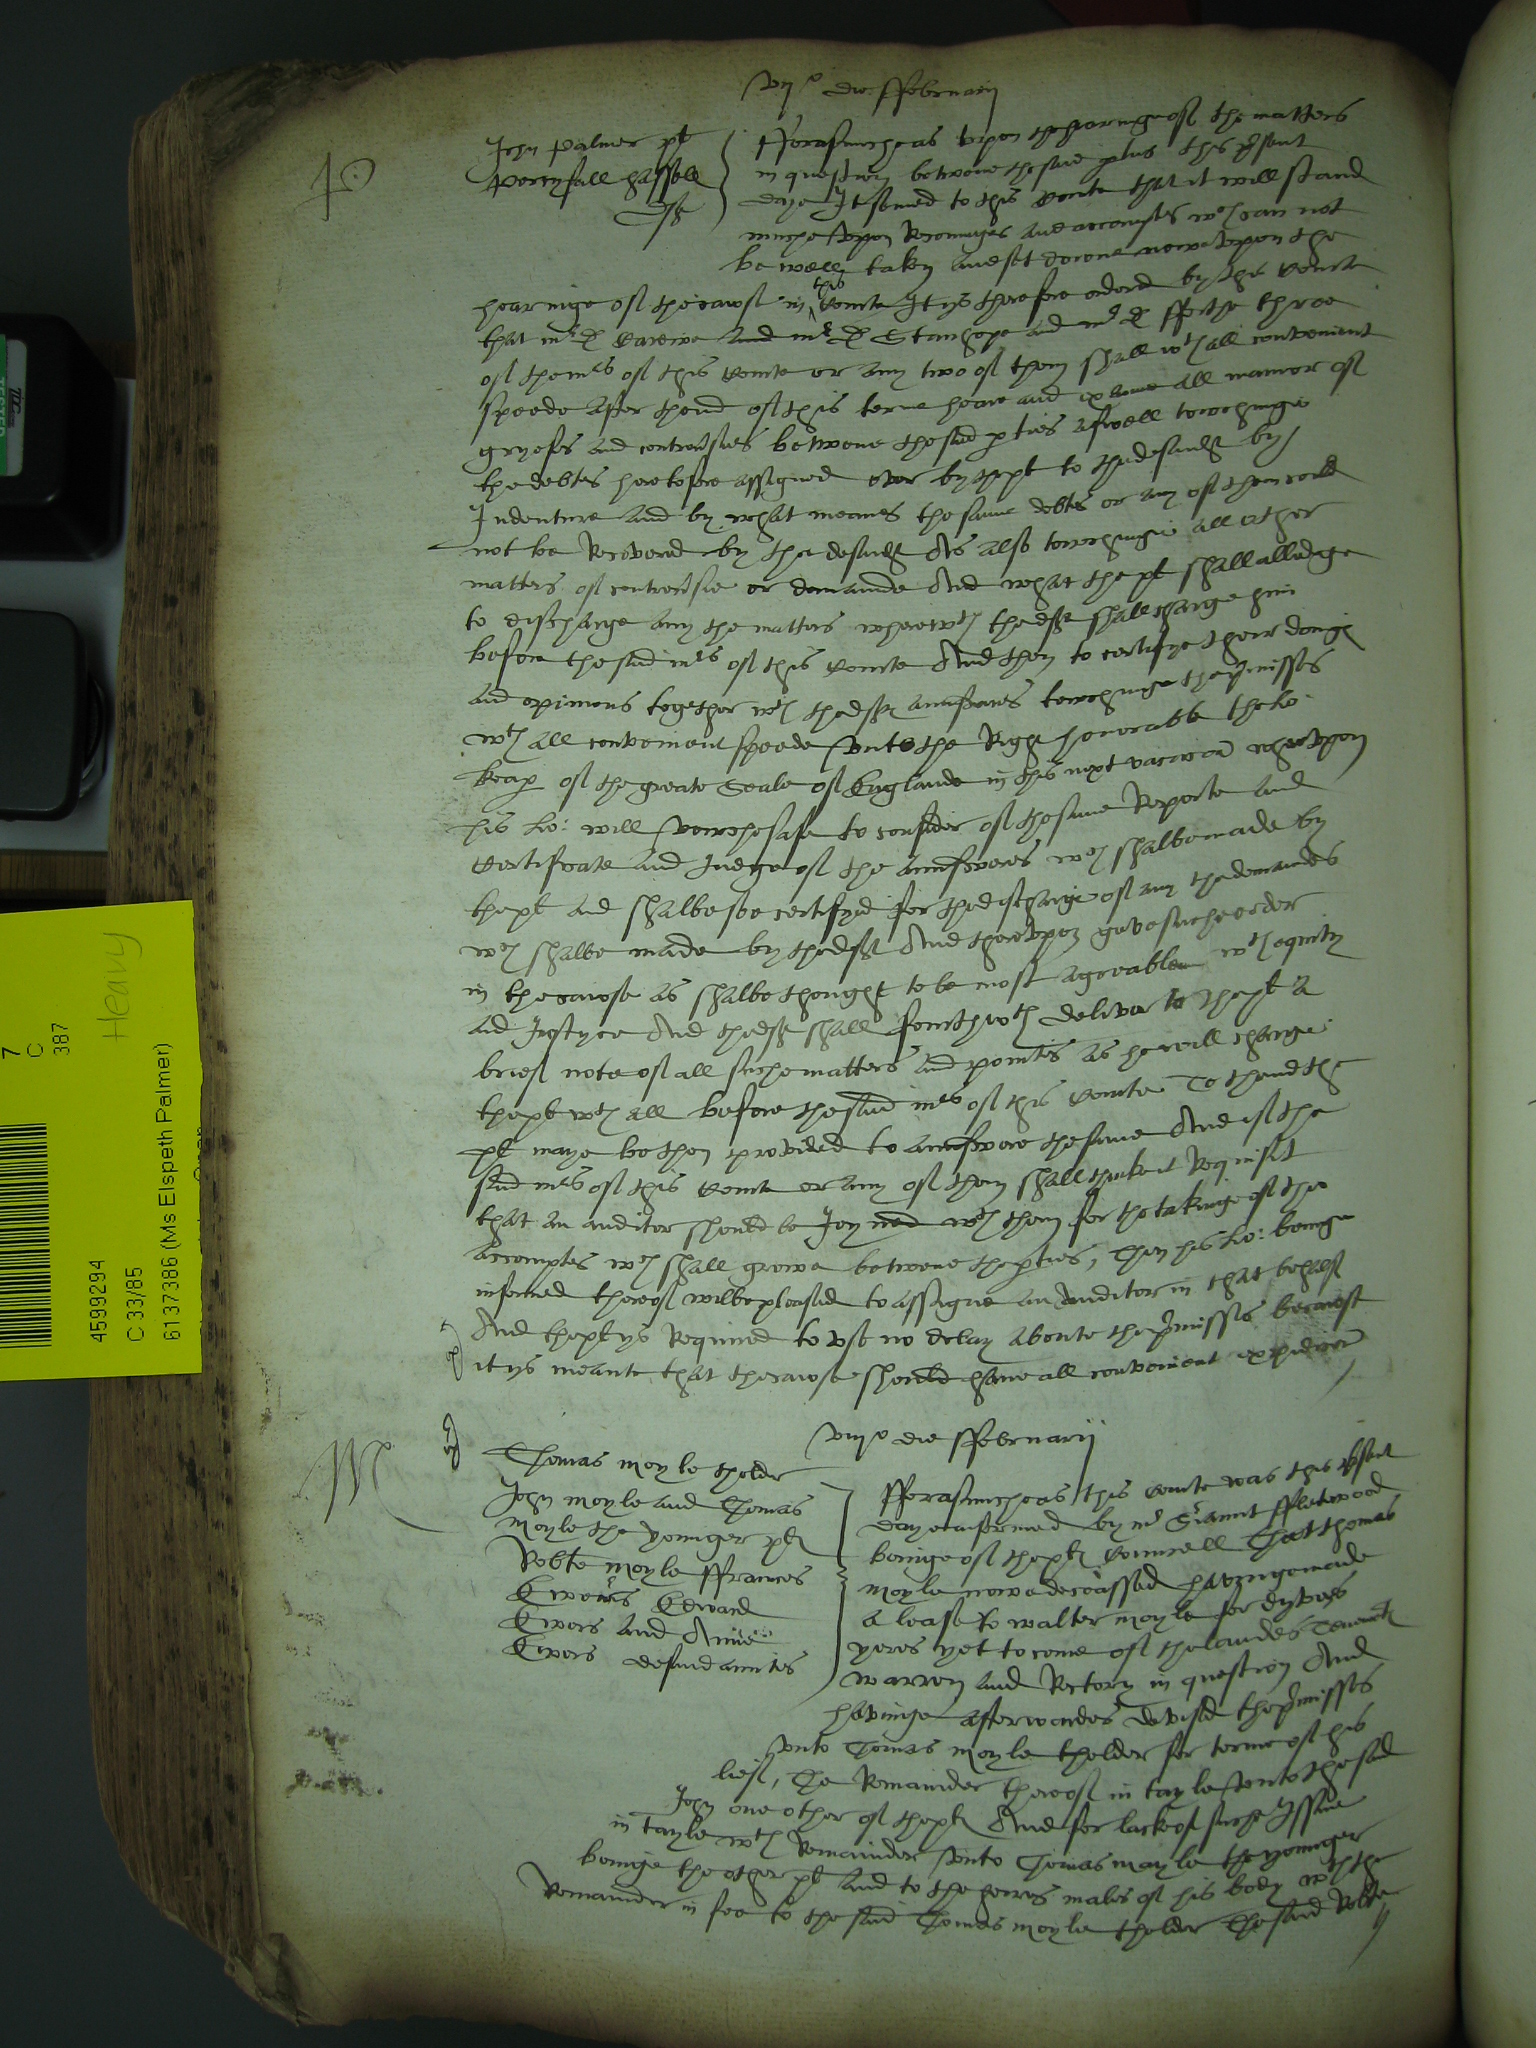 vij° die ffebruarij
P
John Palmer pl
Percyfall Hassell
deft
Fforasmuche as vpon the hearinge of the matters
in question betwene the said p̱ties this p̱sent
daye It semed to this Courte that it will stand
muche vpon Reconinges and accomptes wch can not
be well taken and set downe nowe vpon the
hearinge of the cawse in this Courte It ys therefore ordred by this Courte
that mr D Carewe and mr D Stanhope and mr D fforthe three
of the mrs of this Courte or any two of them shall wth all convenient
speede after thend of this terme heare and examine all manner of
gryefes and controu̱sies betwene the said p̱ties aswell towchinge
the debtes heretofore assigned over by the pl to the defendt by
Indenture and by what meanes the same debtes or any of them could
not be Recovered by the defendt As also towchinge all other
matters of controu̱sie or demaunde And what the pl shall alledge
to discharge any the matters wherewth the deft shall charge him
before the said mrs of this Courte And then to certifye their doings
and opinions together wth the deftes answeares towchinge the p̱misses
wth all convenient speede vnto the Right honorable the Lo:
keap̱ of the greate Seale of Englande in this next vacacion wherevpon
his Lo: will vowchesafe to consider of the same Reporte and
Certificate and Iudge of the aunsweres wch shalbe made by
the pl and shalbe soe certifyed for the discharge of any the demaundes
wch shalbe made by the deft And therevpon geve suche order
in the cawse as shalbe thought to be most agreable wth equity
and Justyce And the deft shall fourthwth deliver to the pl a
brief note of all suche matters and pointes as he will charge
the pl wth all before the said mrs of this Courte To thend the
pl maye be then provided to aunswere the same And if the
said mrs of this Courte or any of them shall thinke it Requisit
that an auditor should be Joyned wth them for the takinge of the
accomptes wch shall growe betwene the p̱ties, Then his Lo: beinge
informed thereof wilbe pleased to assigne an auditor in that behalf
And the pl ys Required to vse no delay aboute the p̱misses because
it ys meante that the cawse should have all convenient expedicion
viij° die ffebruarij
M
Thomas Moyle thelder
John Moyle and Thomas
Moyle the yonger pls
Robte Moyle ffrances
Ewers Edward
Ewers and Anne
Ewers defendauntes
Fforasmuche as this Courte was this p̱sent
daye informed by mr Sṟiaunt ffletwood
beinge of the pls Councell That Thomas
Moyle nowe deceassed havinge made
a lease to Walter Moyle for dyvers
yeres yet to come of the landes Tenemts
warren and Rectory in question And
havinge afterwardes devised the p̱misses
vnto Thomas Moyle thelder for terme of his
lief, The Remainder thereof in tayle vnto the said
John one other of the pls And for lacke of suche Issue
in tayle wth Remainder vnto Thomas Moyle the yonger
beinge the other pl and to the heires males of his body wth the
Remainder in fee to the said Thomas Moyle thelder The said Robte
4599294
C 33/85
6137386 (Ms Elspeth Palmer)
7
C
387
Heavy